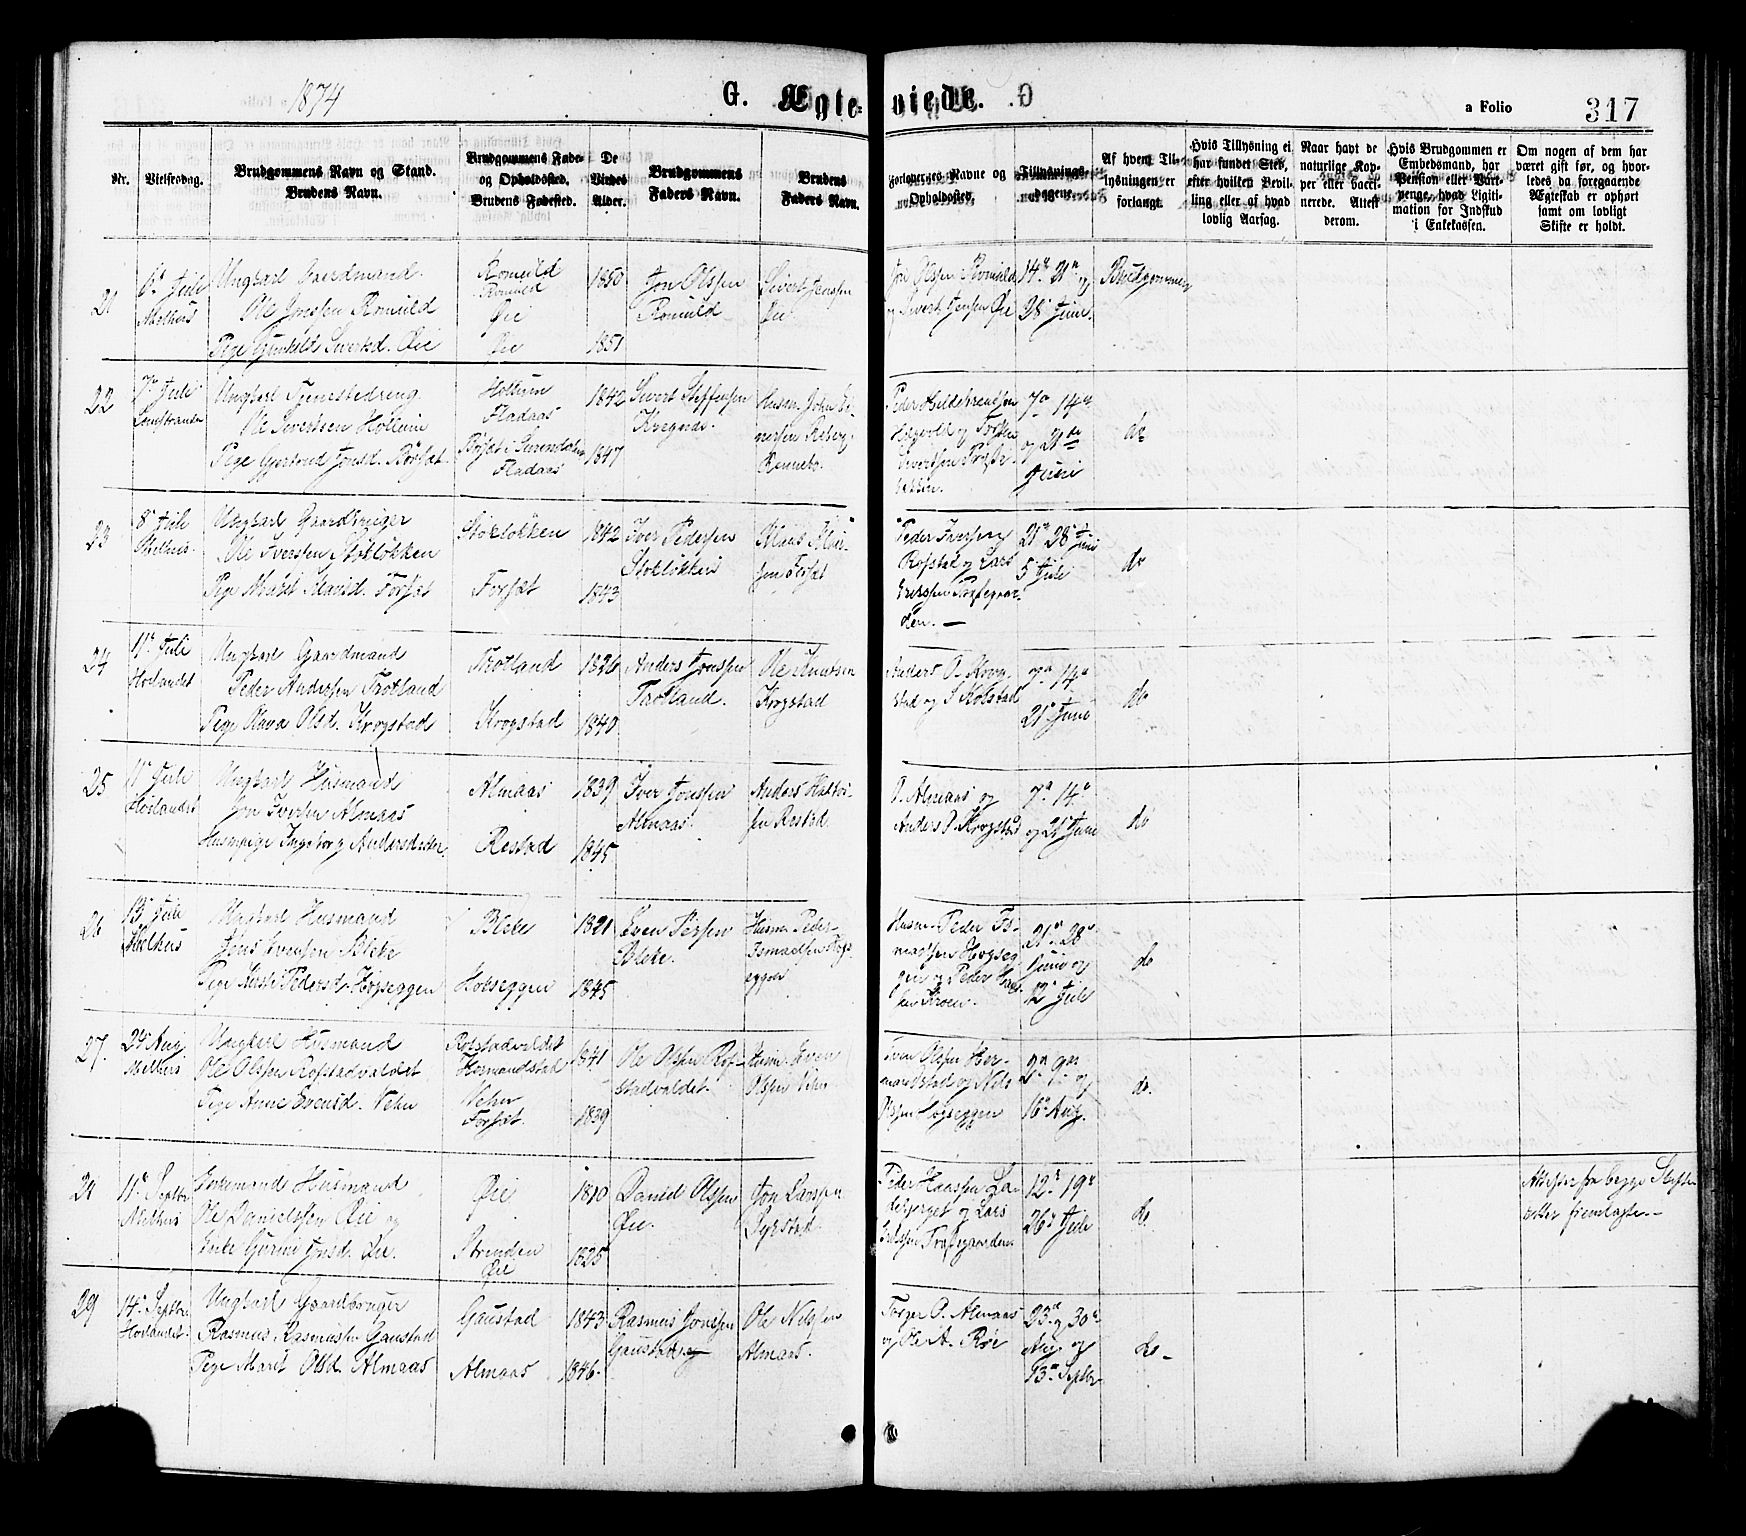 1874
G. Ægteviede.
a Folio 317
Nr.
Vielsesdag.
Brudgommens Navn og Stand.
Brudens Navn.
Brudgommens Føde-
og Opholdssted.
Brudens Fødested.
De
Viedes
Alder.
Brudgommens
Faders Navn.
Brudens
Faders Navn.
Forlovernes Navne og
Opholdssted.
Tillysnings-
dagene.
Af hvem Til-
lysningen er
forlangt.
Hvis Tillysning ei
har fundet Sted,
efter hvilken Bevil-
ling eller af hvad
lovlig Aarsag.
Naar havt de
naturlige Kop-
per eller vacci-
nerede. Attest
derom.
Hvis Brudgommen er
Embedsmand, har
Pension eller Vart-
penge, hvad Ligiti-
mation for Indskud
i Enkekassen.
Om nogen af dem har
været gift før, og hvor-
ledes da foregaaende
Ægteskab er ophørt
samt om lovligt
Skifte er holdt.
21
6te Juli
Melhus
Ungkarl Gaardmand
Ole Jonsen Romuld
Pige Gunhild Sivertsd. Øie
Romuld
Romuld
Øie
Øie
1850
1851
Jon Olssen
Romuld
Sivert Jenssen
Øie
Jon Olssen Romuld
og Sivert Jensen Øie
14de 21de og
28 Juni
Brudgommen
22
7de Juli
Ungkarl Tjenestedreng
Ole Sivertsen Hollum
Pige Gjertrud Jonsd. Børsæt
Hollum
Fladaas
Børsæt i Surendalen
Fladaas
1842
1847
Sivert Steffensen
Husm. John Ei-
nersen
Rennebo.
Peder Hildebrandsen
og
Sivertsen
7de 14de
og 21de
Juni
do
23
8de Juli
Melhus
Ungkarl Gaardbruger
Ole Iversen Stokløkken
Pige Marit Klausd. Forsæt
Stokløkken
Forsæt
1842
1843
Iver Pedersen
Stokløkken
Klaus
Forsæt
Peder Iversen
Rofstad og Lars
Ericssen Præstegaar-
den. —
21de 28de Juni
5 Juli
do
24
11te Juli
Hølandet
Ungkarl Gaardmand
Peder Andersen Trotland
Pige Olava Olsd. Krogstad
Trotland
Krogstad
1826
1840
Anders Jonssen
Trotland.
Ole Knudsen
Krogstad
Anders O. Krog-
stad og S Kolstad
7de 14de
21de Juni
do
25
11te Juli
Hølandet
Ungkarl Husmand
Jon Iversen Almaas
Husmpige Ingeborg Andersdatter
Almaas
Restad
1839
1845
Iver Jonssen
Almaas.
Anders Halvor-
sen Restad
O. Almaas og
Anders O. Krogstad
7de 14de
og 21de Juni
do
26
13de Juli
Melhus
Ungkarl Husmand
Jens Evensen Bleke
Pige Kirsti Pedersd. Høgseggen
Bleke
Høgseggen
1821
1845
Even Persen
Bleke.
Husm. Peder
Ismaelsen Høgs-
eggen
Husm. Peder Is-
maelsen Høgseg-
gen og Peder
21de 28de
Juni og
12te Juli
do
27.
24de Aug
Melhus
Ungkarl Husmand
Ole Olssen Rofstadvaldet
Pige Anne Evensd. Vehn
Rofstadvaldet
Hermandstad
Vehn
Forsæt.
1841
1839
Ole Olssen Rof-
stadvaldet.
Husm. Even
Olssen Vehn
Even Olssen Her-
mandstad og Nils
Olssen Høgseggen
2de 9de og
16de Aug.
do.
28
11te Septbr
Melhus
Enkemand Husmand
Ole Danielssen Øie og
Enke Gurine Jonsd. Øie.
Øie
Strinden
Øie
1810
1825
Daniel Olssen
Øie.
Jon Larssen
Syrstad.
Peder Haassen La-
debjerget og Lars
Erikssen Præstgaarden
12te 19de
26de Juli
do
Attester fra begge Skifte-
retter fremlagte. —
29
14de Septbr
Hølandet.
Ungkarl Gaardbruger
Rasmus Rasmussen Gaustad
Pige Marit Olsd. Almaas
Gaustad
Almaas
1843
1846
Rasmus Jonssen
Gaustad
Ole Nilssen
Almaas.
Torger O. Almaas
og Ole A. Røe
23de og 30de
Aug og
13de Septbr
do —